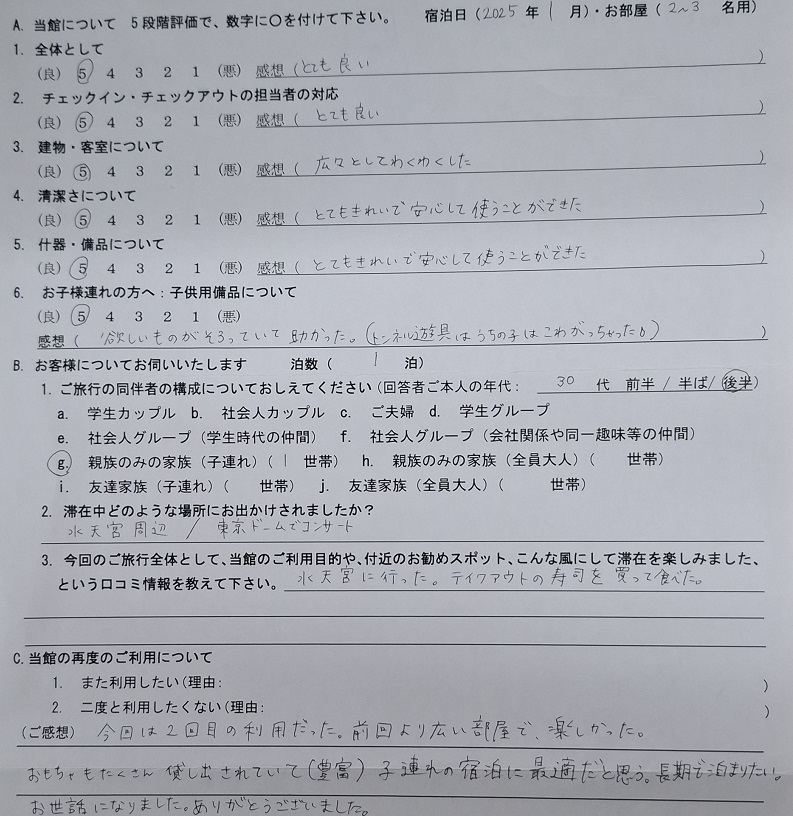 A. 当館について 5段階評価で、数字に〇を付けて下さい。 宿泊日(2025年 1月)・お部屋(2~3 名用)
1. 全体として
(良) 5 4 3 2 1 (悪) 感想(とても良い)
2. チェックイン・チェックアウトの担当者の対応
(良) 5 4 3 2 1 (悪) 感想(とても良い)
3. 建物・客室について
(良) 5 4 3 2 1 (悪) 感想(広々としてわくわくした)
4. 清潔さについて
(良) 5 4 3 2 1 (悪) 感想(とてもきれいで安心して使うことができた)
5. 什器・備品について
(良) 5 4 3 2 1 (悪) 感想(とてもきれいで安心して使うことができた)
6. お子様連れの方へ:子供用備品について
(良) 5 4 3 2 1 (悪)
感想(欲しいものがそろっていて助かった。(トンネル遊具はうちの子はこわがっちゃった))
B. お客様についてお伺いいたします 泊数(1 泊)
1. ご旅行の同伴者の構成についておしえてください(回答者ご本人の年代: 30 代 前半/半ば/後半)
a. 学生カップル b. 社会人カップル c. ご夫婦 d. 学生グループ
e. 社会人グループ(学生時代の仲間) f. 社会人グループ(会社関係や同一趣味等の仲間)
g. 親族のみの家族(子連れ)(1 世帯) h. 親族のみの家族(全員大人)( 世帯)
i. 友達家族(子連れ)( 世帯) j. 友達家族(全員大人)( 世帯)
2. 滞在中どのような場所にお出かけされましたか?
水天宮周辺 / 東京ドームでコンサート
3. 今回のご旅行全体として、当館のご利用目的や、付近のお勧めスポット、こんな風にして滞在を楽しみました、
という口コミ情報を教えて下さい。水天宮に行った。テイクアウトの寿司を買って食べた。
C.当館の再度のご利用について
1. また利用したい(理由: )
2. 二度と利用したくない(理由: )
(ご感想) 今回は2回目の利用だった。前回より広い部屋で、楽しかった。
おもちゃもたくさん貸し出されていて(豊富)子連れの宿泊に最適だと思う。長期で泊まりたい。
お世話になりました。ありがとうございました。